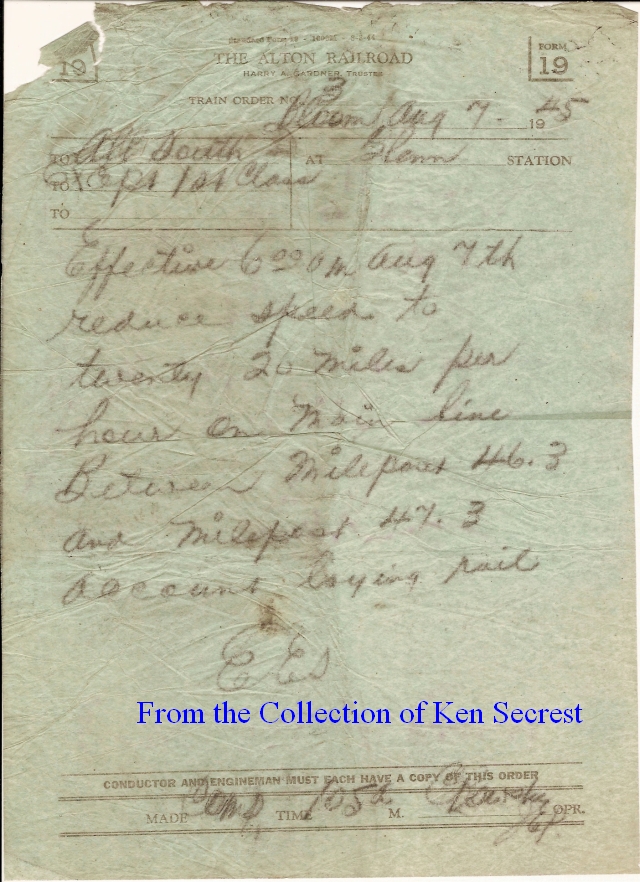 THE ALTON RAILROAD
HARRY A. GARDNER, TRUSTEE
FORM
19
19
TRAIN ORDER NO. 3
Bloom Aug 7 - 1945
TO All South AT Glenn STATION
TO Expt 1st Class
TO
Effective 600 am Aug 7th
reduce speed to
twenty 20 miles per
hour on Main line
Between Milepost 46.3
and Milepost 47.3
account laying rail
EES
From the Collection of Ken Secrest
CONDUCTOR AND ENGINEMAN MUST EACH HAVE A COPY OF THIS ORDER
MADE Com TIME 105 M. OPR.